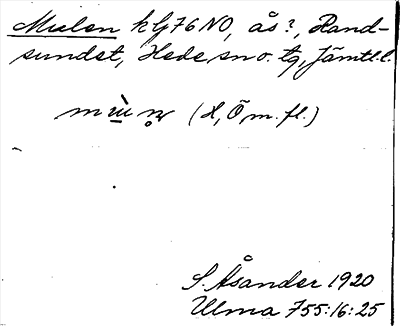 Mulen k bj 76 NO, ås?, Rand-
sundet, Hede sn o. tg, Jämtl. l.
(X, Ö m. fl.)
S. Åsander 1920
Ulma 755:16:25